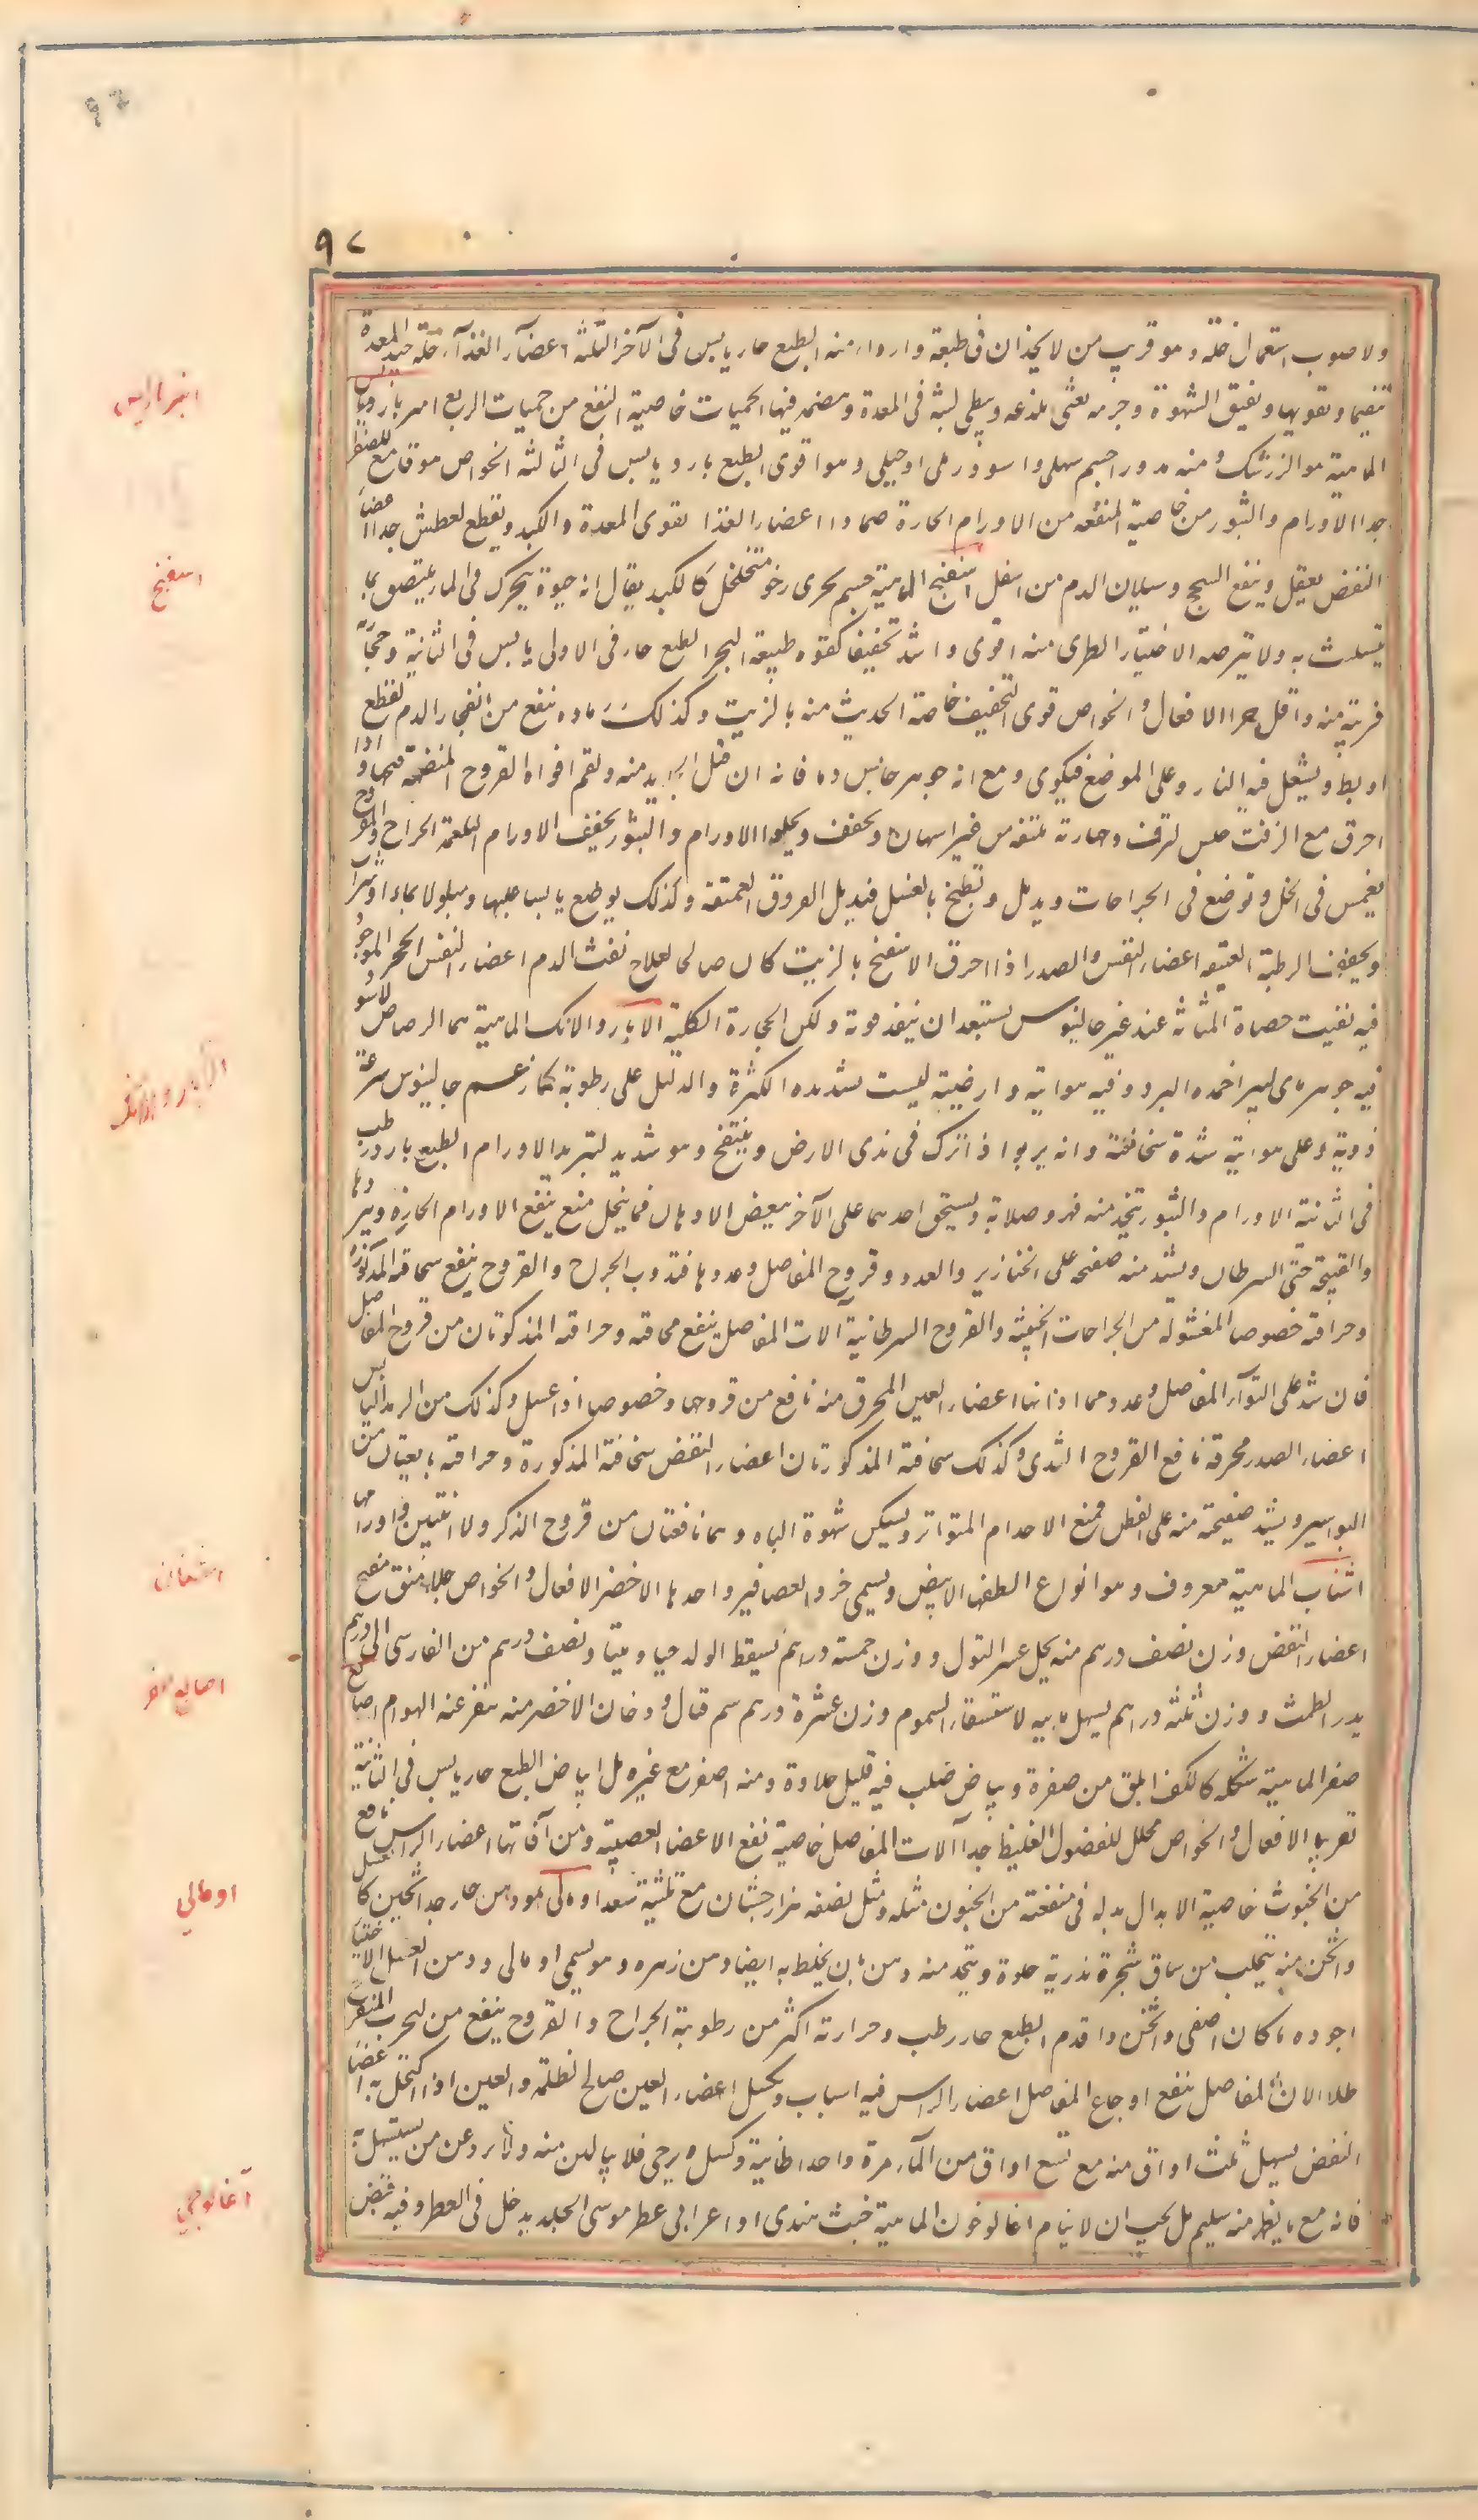 ٩٧
ولاصوب استعمال خله وهو قريب من لا يخدان في طبعة واردا، منه الطبع حار يابس في الآخر الثلثة اعضآء الغذآء خله جيد للمعدة
ينقيها ويقويها ويفتق الشهوة وجرمه يغثى بلذعه ويبطى لبثه في المعدة وهضمه فيها الحميات خاصية النفع من حميات الربع امبر باريس
انبرباريس
الماهية هو الزرشك ومنه مدور احمر سهلى واسود رملى او جبلى وهو اقوى الطبع بارد يابس في الثالثة الخواص هو قامع للصفرا
جدا الاورام والبثور من خاصية المنفعه من الاورام الحارة ضمادا اعضاء الغذا يقوى المعدة والكبد ويقطع العطش جدا اعضآ
النفض يعقل وينفع السحج وسيلان الدم من اسفل اسفنج الماهية جسم بحرى رخو متخلخل كالكبد يقال انه حيوة يتحرك في الماء
اسفنج
الاختيار الطرى منه اقوى واشد تجفيفا كقوة طبيعة البحر الطبع حار في الاولى يابس في الثانية وحجارته
قريبة منه واقل حرا الافعال والخواص قوى التجفيف خاصة الحديث منه بالزيت وكذلك رماده نفع من انفجار الدم لقطع
او بط ويشعل فيه النار وعلى الموضع فيكوى ومع انه جوهر حابس دما فانه ان فتل منه ولقم افواه القروح المنضمة فتحها واذا
احرق مع الزفت وحجارته من غير اسهان ويجفف ويجلو الاورام والبثور يجفف الاورام البلغمية الجراح والقروح
يغمس في الخل وتوضع في الجراحات ويدمل وتطبخ بالعسل فيدمل القروق العميقة وكذلك يوضع يابسا عليها ومبلولا بماء او شراب
ويجفف الرطبة العتيقه اعضاء النفس والصدر اذا احرق الاسفنج بالزيت كان صالحا لعلاج نفث الدم اعضاء النفس الحجر الموجود
فيه تفتيت حصاة المثانة عند غير جالينوس يستبعد ان ينفذ قوته ولكن الحجارة الكلية الابار والانك الماهية هما الرصاص الاسود
الابار والانك
فيه جوهر مائي اجمده البرد وفيه هوائية وارضيته ليست شديده الكثرة والدليل على رطوبته كما زعم جالينوس سرعة
ذوبه وعلى هوائيته شدة سخافته وانه يربو اذا ترك في ندى الارض وينتفخ وهو شديد لتبريد الاورام الطبع بارد رطب
في الثانية الاورام والبثور يتخذ منه فهر وصلابة ويسحق احدهما على الآخر ببعض الادهان فما ينحل منه ينفع الاورام الحارة
والقبيحة حتى السرطان ويشد منه صفيحه على الخنازير والعدد وقروح المفاصل وعددها فتذوب الجراح والقروح ينفع سحاقه المذكورة
وحراقته خصوصا المغسولة من الجراحات الخبيثه والقروح السرطانية آلات المفاصل ينفع سحاقته وحراقته المذكورتان من قروح المفاصل
فان شد على التوآء المفاصل وعددهما اذابها اعضاء العين المحرق منه نافع من قروحها وخصوصا اذا غسل وكذلك من الرمد اليابس
اعضاء الصدر محرقه نافع القروح الثدى وكذلك سحاقته المذكورتان اعضاء النفض سحاقته المذكورة وحراقته من
البواسير ويشد صفيحة منه على القطن فيمنع الاحتلام المتواتر ويسكن شهوة الباه وهما نافعتان من قروح الذكر والانثيين واورامها
اشنان الماهية معروف وهو انواع الطفها الابيض ويسمى خرؤ العصافير واحدها الاخضر الافعال والخواص جلاء منق مفتح
اشنان
اعضاء النفض وزن نصف درهم منه يحل عسر البول ووزن خمسة دراهم يسقط الولد حيا وميتا ونصف درهم من الفارسى الى درهم
يدر الطمث ووزن ثلثه دراهم يسهل مائيه الاستسقاء السموم وزن عشرة درهم سم قتال ودخان الاخضر منه ينفر عنه الهوام اصابع
اصابع صفر
صفر الماهية شكله كالكف ابلق من صفرة وبياض صلب فيه قليل حلاوة ومنه اصفر مع غبره بل ابياض الطبع حار يابس في الثانية
تقريبا الافعال والخواص محلل للفضول الغليظ جدا آلات المفاصل خاصية نفع الاعضا العصبية ومن آفاتها اعضاء الراس نافع
من الجنون خاصية الابدال بدله في منفعته من الجنون مثله ومثل نصفه هزارجشان مع ثلثيه سعد اومالى هو دهن حار جدا ثخين كالعسل
اومالي
واثخن منه يتحلب من ساق شجرة حلوة ويتخذ منه دهن بان يخلط به ايضا ومن زهره وهو يسمى اومالى ودهن العسل الاختيار
اجوده ما كان اصفى واثخن واقدم الطبع حار رطب وحرارته اكثر من رطوبته الجراح والقروح ينفع من الجرب المتقرح
طلا الات المفاصل ينفع اوجاع المفاصل اعضاء الراس فيه اسبات وكسل اعضاء العين صالح لظلمة والعين اذا اكتحل به اعضا
النفض يسهل ثلث اواق منه مع تسع اواق من الماء مرة واحدا وكسل ويرخى فلا يبالين منه ولا يردعن من يستسهل به
فانه مع ما يظهر منه سليم بل يجب ان لا ينام اغالوخون الماهية خشب هندى او اعرابى عطر موشى الجلد يدخل في العطر وفيه قبض
آغالوجي